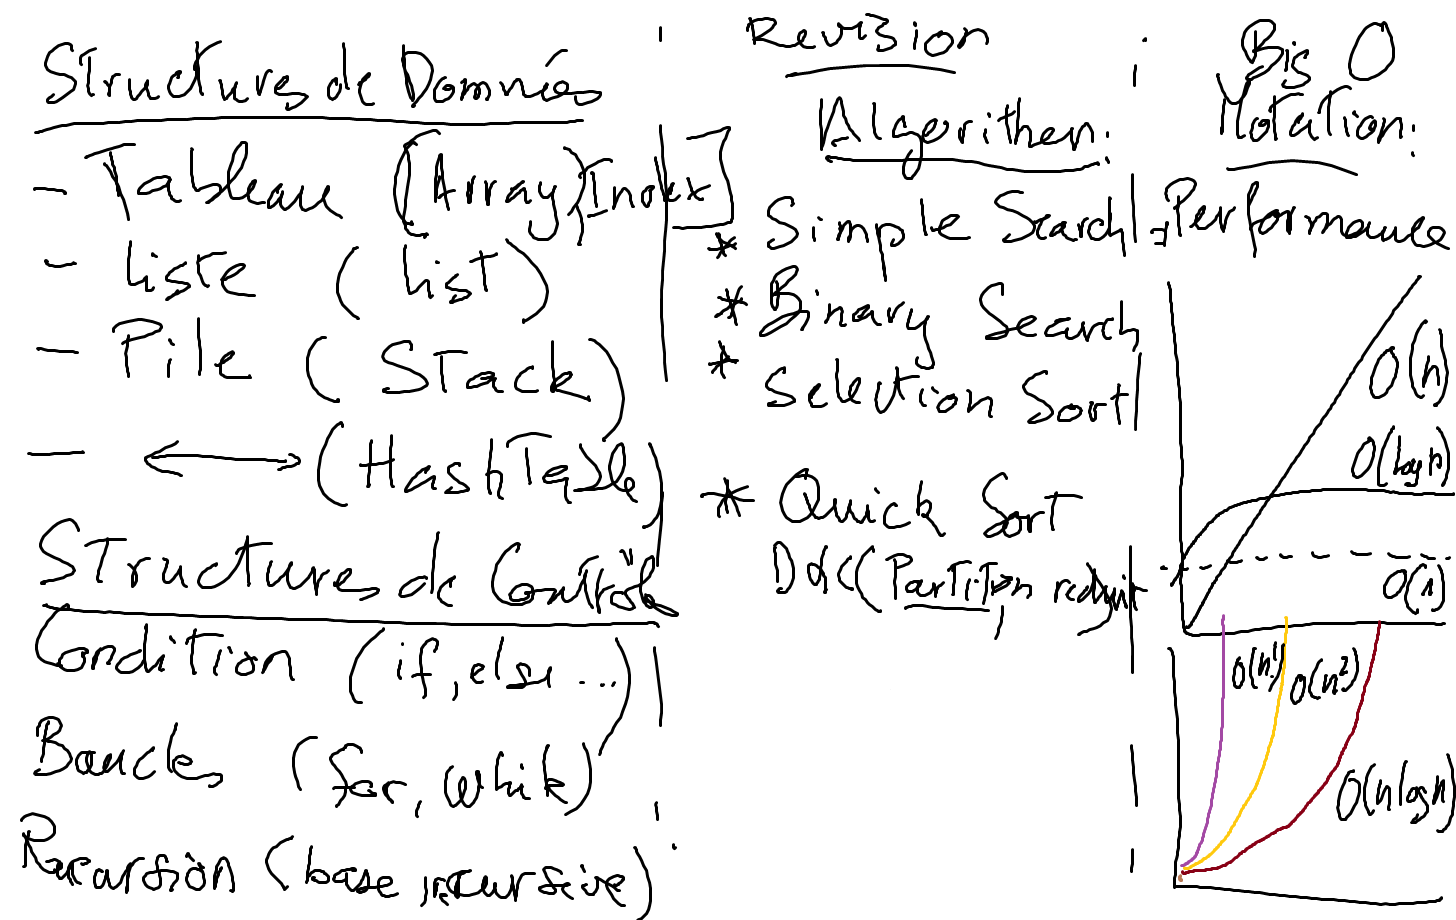 Revision
Structures de Données
- Tableau (Array) [Index]
- Liste (List)
- Pile (Stack)
- ↔ (HashTable)
Structures de Contrôle
Condition (if, else ...)
Boucles (for, while)
Recursion (base, recursive)
Algorithen:
* Simple Search
* Binary Search
* Selection Sort
* Quick Sort
D&C (Partition, reduyit
Big O
Notation:
Performance
O(n)
O(log n)
O(1)
O(n!)
O(n²)
O(n log n)